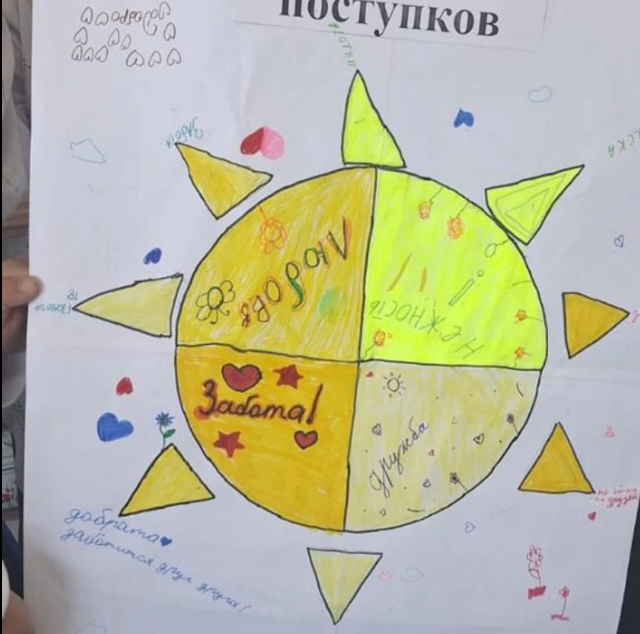 поступков
Забота
Любовь
нежность
Забота!
дружба
доброта
заботится друг друга!